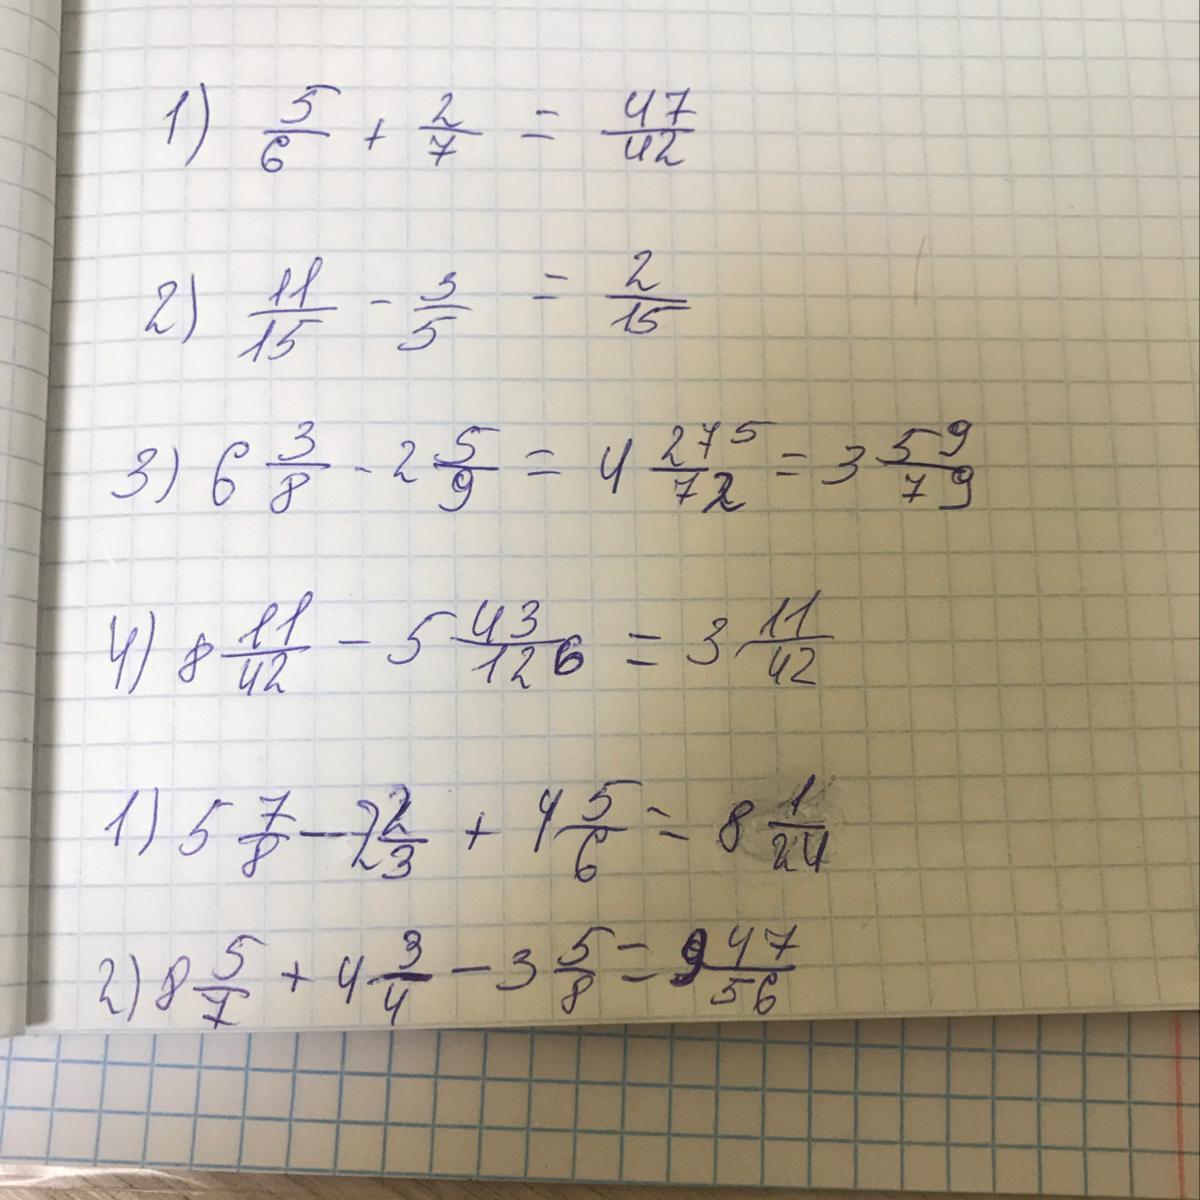 1) 5/6 + 2/7 = 47/42
2) 11/15 - 3/5 = 2/15
3) 6 3/8 - 2 5/9 = 4 275/72 = 3 59/79
4) 8 11/42 - 5 43/126 = 3 11/42
1) 5 7/8 - 2 2/3 + 4 5/6 = 8 1/24
2) 8 5/7 + 4 3/4 - 3 5/8 = 9 47/56